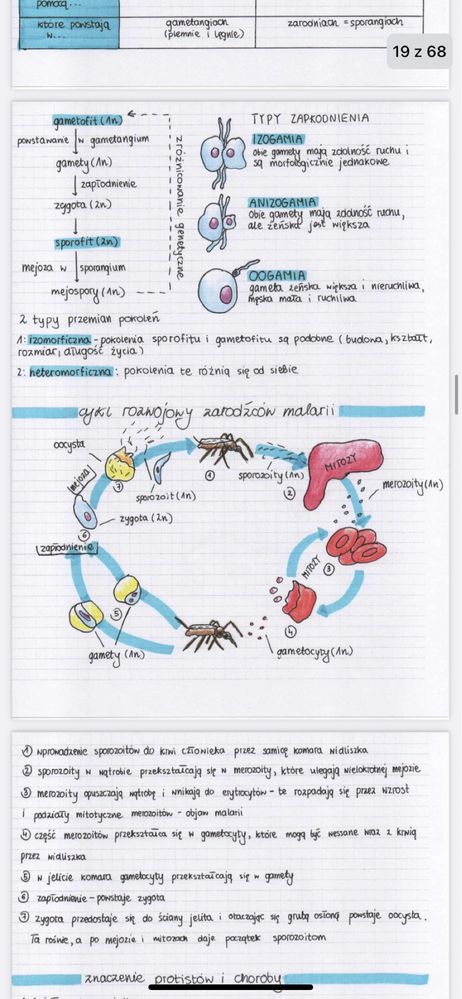 pomocą...
które powstają w...
gametangiach (plemnie i lęgnie)
zarodniach = sporangiach
19 z 68
gametofit (1n)
powstawanie w gametangium
gamety (1n)
zapłodnienie
zygota (2n)
sporofit (2n)
mejoza w sporangium
mejospory (1n)
zróżnicowanie genetyczne
TYPY ZAPŁODNIENIA
IZOGAMIA
obie gamety mają zdolność ruchu i
są morfologicznie jednakowe.
ANIZOGAMIA
obie gamety mają zdolność ruchu,
ale żeńska jest większa
OOGAMIA
gameta żeńska większa i nieruchliwa,
męska mała i ruchliwa
2 typy przemian pokoleń
1: izomorficzna - pokolenia sporofitu i gametofitu są podobne (budowa, kształt,
rozmiar, długość życia)
2: heteromorficzna: pokolenia te różnią się od siebie
cykl rozwojowy zarodźców malarii
oocysta
mejoza
7
sporozoit (1n)
1
sporozoity (1n)
2
MITOZY
merozoity (1n)
6
zygota (2n)
zapłodnienie
MITOZY
3
5
4
gamety (1n)
gametocyty (1n)
1 wprowadzenie sporozoitów do krwi człowieka przez samicę komara widliszka
2 sporozoity w wątrobie przekształcają się w merozoity, które ulegają wielokrotnej mejozie
3 merozoity opuszczają wątrobę i wnikają do erytrocytów - te rozpadają się przez wzrost
i podziały mitotyczne merozoitów - objaw malarii
4 część merozoitów przekształca się w gametocyty, które mogą być wessane wraz z krwią
przez widliszka
5 w jelicie komara gametocyty przekształcają się w gamety
6 zapłodnienie - powstaje zygota
7 zygota przedostaje się do ściany jelita i otaczając się grubą osłoną powstaje oocysta.
Ta rośnie, a po mejozie i mitozach daje początek sporozoitom
znaczenie protistów i choroby